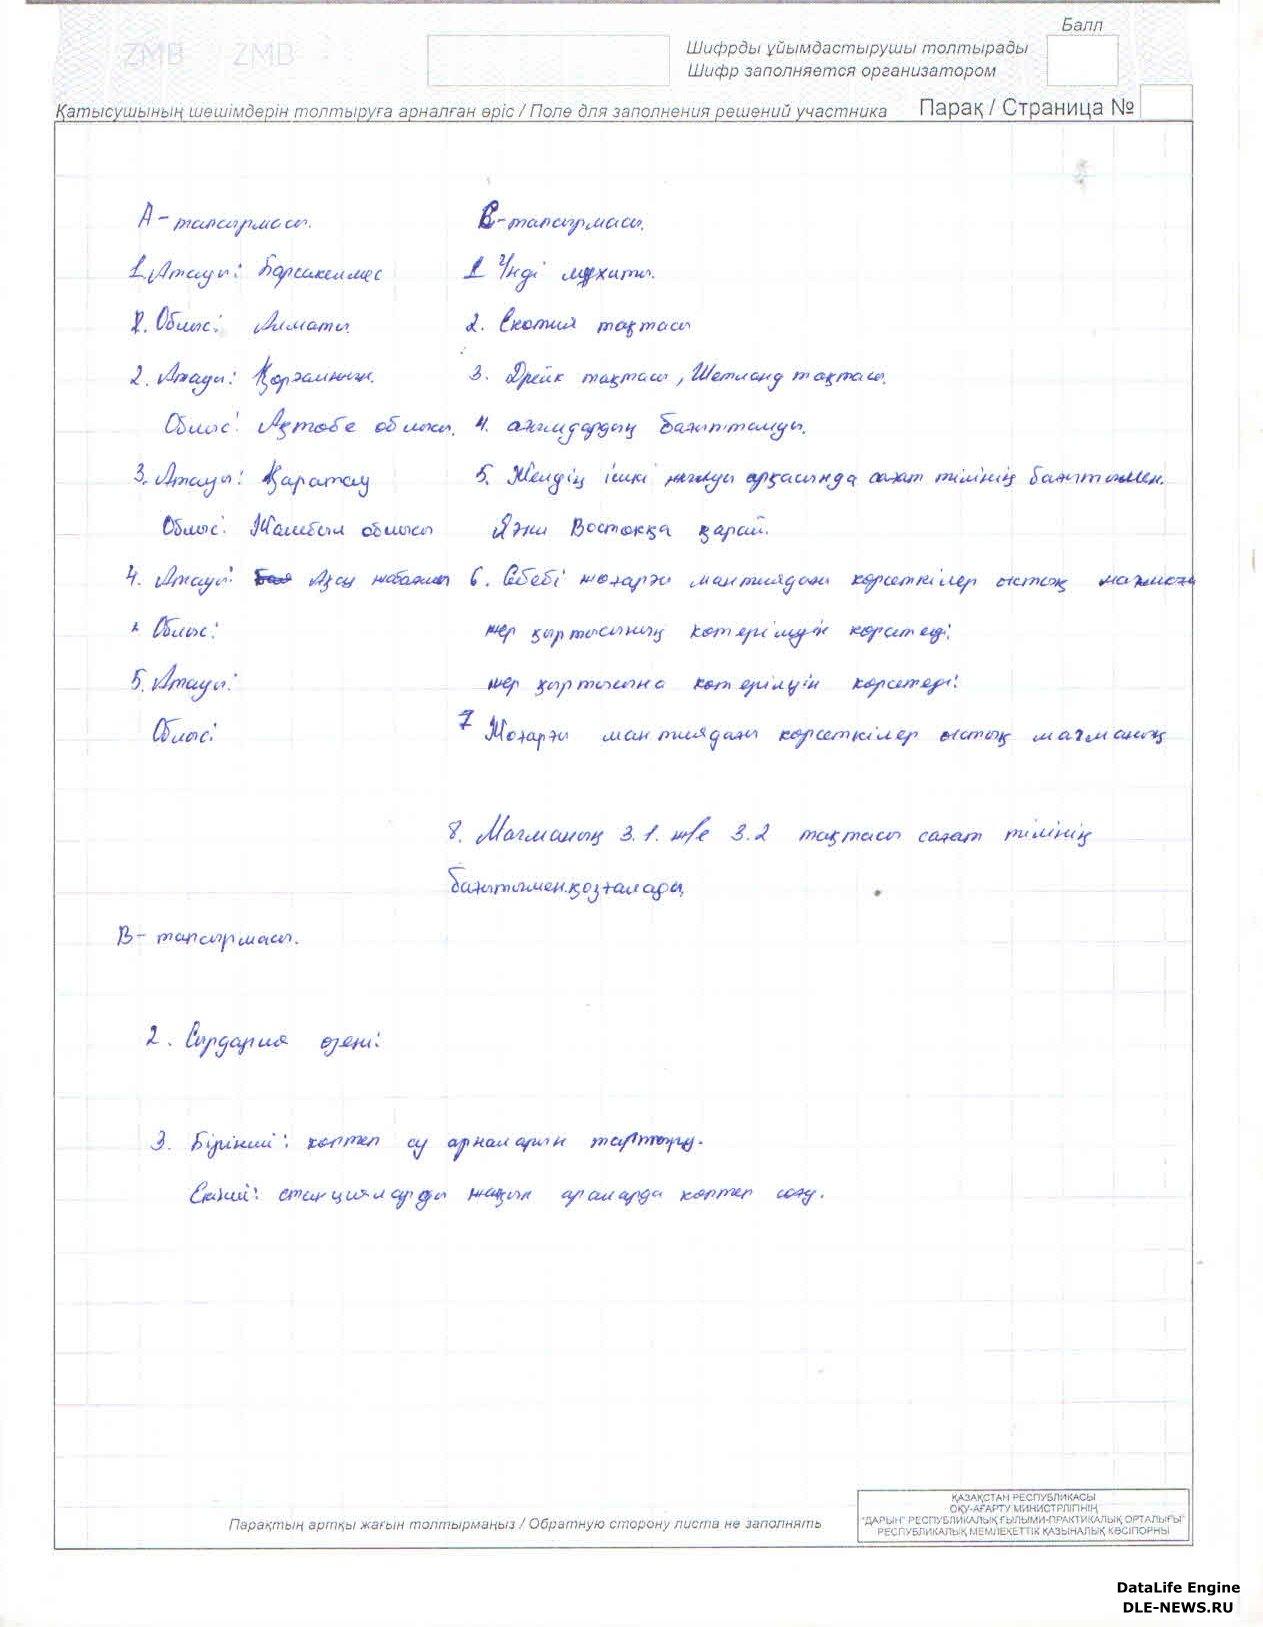 ZMB ZMB
Балл
Шифрды ұйымдастырушы толтырады
Шифр заполняется организатором
Қатысушының шешімдерін толтыруға арналған өріс / Поле для заполнения решений участника
Парақ / Страница №
А - тапсырмасы.
1. Атауы: Барсакелмес
2. Облыс: Алматы.
2. Атауы: Қорғалжын.
Облыс: Ақтөбе облысы.
3. Атауы: Қаратау
Облыс: Жамбыл облысы
4. Атауы: Ақсу жабағлы
Облыс:
5. Атауы:
Облыс:
С-тапсырмасы.
1 Үнді мұхиты.
2. Скотия тақтасы
3. Дрейк тақтасы, Шетланд тақтасы.
4. ағымдардың бағытталуы.
5. Желдің ішкі арқасында сағат тілінің бағытымен.
Яғни Востокқа қарай.
6. Себебі жоғарғы мантиядағы көрсеткілер ыстық
жер қыртысының көтерілуін көрсетеді.
жер қыртысына көтерілуін көрсетеді.
7 Жоғарғы мантиядағы көрсеткілер ыстық магманың
8. Магманың 3.1. ж/е 3.2 тақтасы сағат тілінің
бағытымен қозғалады.
В- тапсырмасы.
2. Сырдария өзені.
3. Бірінші: көптеп су арналарын тарту.
Екінші: станцияларды жақын араларда көптеп салу.
Парақтың артқы жағын толтырмаңыз / Обратную сторону листа не заполнять
ҚАЗАҚСТАН РЕСПУБЛИКАСЫ
ОҚУ-АҒАРТУ МИНИСТРЛІГІНІҢ
"ДАРЫН" РЕСПУБЛИКАЛЫҚ ҒЫЛЫМИ-ПРАКТИКАЛЫҚ ОРТАЛЫҒЫ"
РЕСПУБЛИКАЛЫҚ МЕМЛЕКЕТТІК ҚАЗЫНАЛЫҚ КӘСІПОРНЫ
DataLife Engine
DLE-NEWS.RU